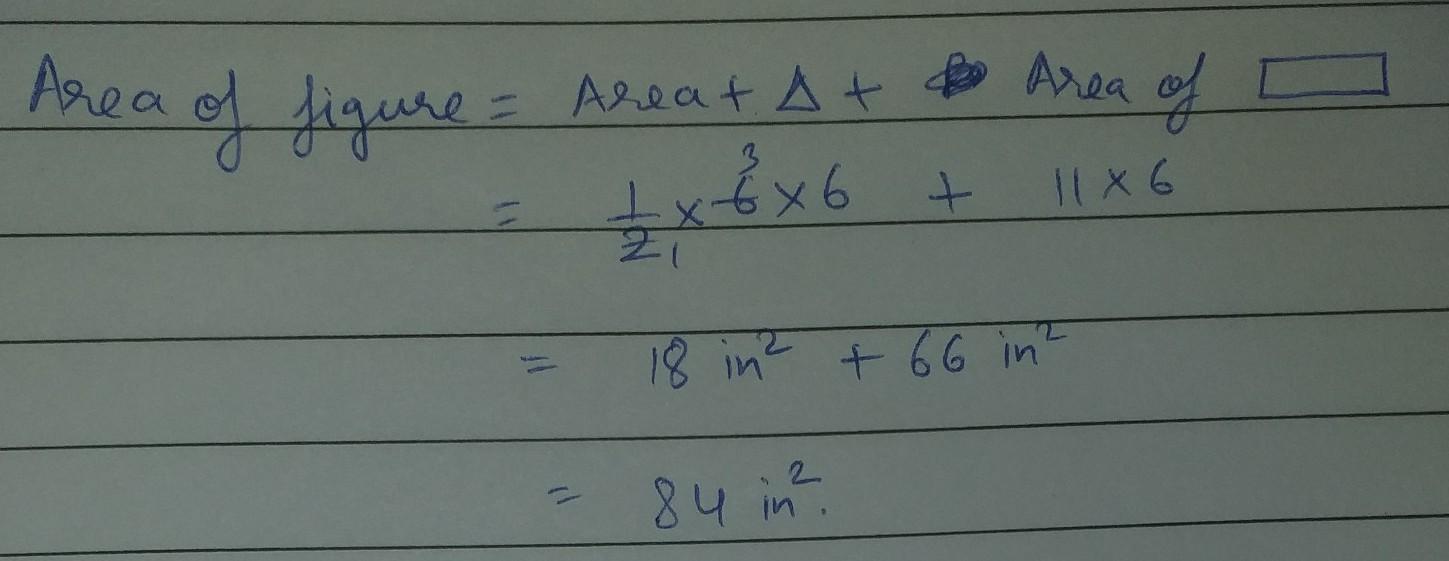 Area of figure = Area + Δ + Area of ▭
= 1/2 1 × 6 3 × 6 + 11 × 6
= 18 in² + 66 in²
= 84 in².